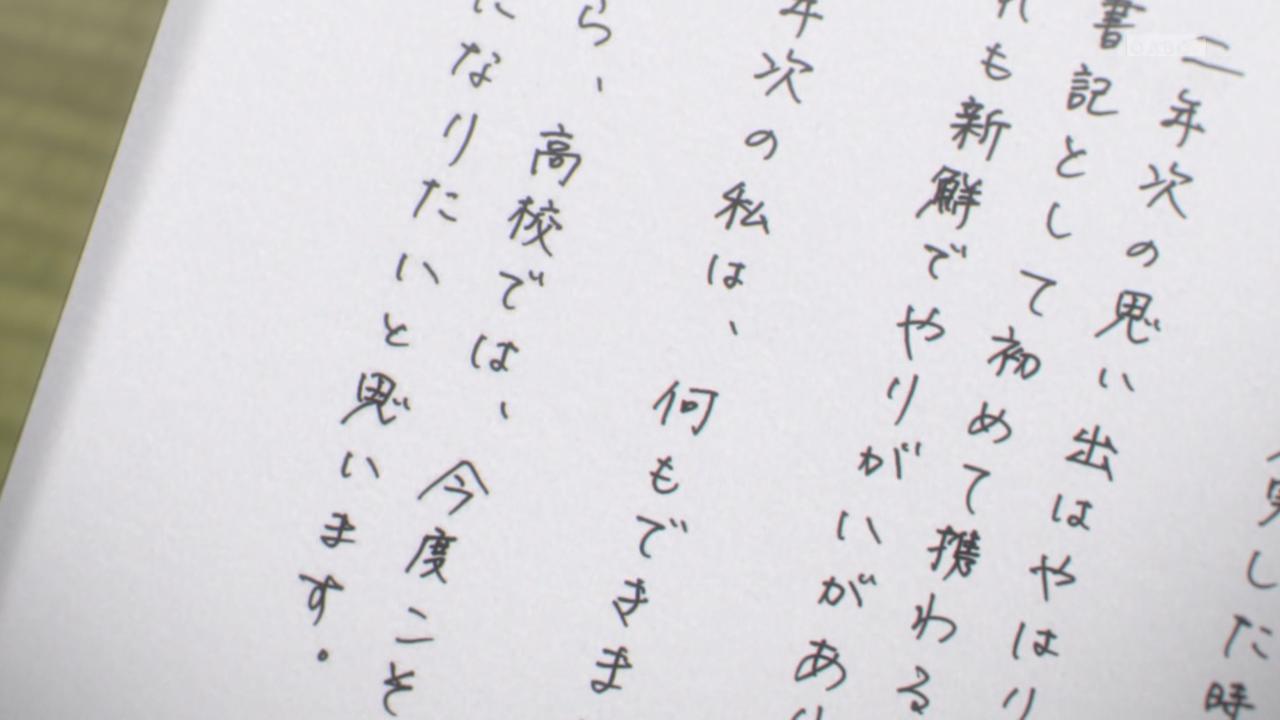 した時
二年次の思い出はやはり
書記として初めて携わる
も新鮮でやりがいがあり
年次の私は、何もできま
ら、高校では、今度こそ
になりたいと思います.